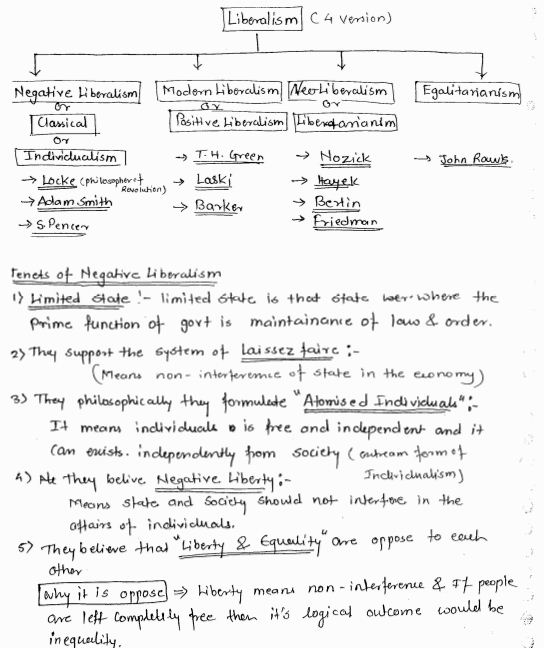 Liberalism (4 version)
Negative Liberalism
or
Classical
or
Individualism
→ Locke (philosopher of Revolution)
→ Adam Smith
→ Spencer
Modern Liberalism
or
Positive Liberalism
→ T. H. Green
→ Laski
→ Barker
Neo Liberalism
or
Libertarianism
→ Nozick
→ Hayek
→ Berlin
→ Friedman
Egalitarianism
→ John Rawls.
Tenets of Negative Liberalism
1) Limited state :- limited state is that state wer. where the
Prime function of govt is maintainance of law & order.
2) They support the system of Laissez faire :-
(Means non-interference of state in the economy)
3) They philosophically they formulate "Atomised Individuals" :-
It means individuals is free and independent and it
can exists. independently from society (extream form of
Individualism)
4) They belive Negative Liberty :-
Means state and society should not interfere in the
affairs of individuals.
5) They believe that "Liberty & Equality" are oppose to each
other
why it is oppose ⇒ Liberty means non-interference & If people
are left completely free then it's logical outcome would be
inequality.